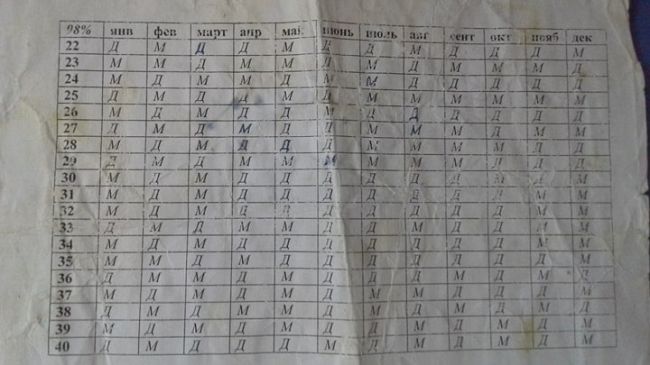 98% янв фев март апр май июнь июль авг сент окт нояб дек
22 Д М Д Д М Д Д М Д Д Д Д
23 М М Д М М Д М Д М М М Д
24 М Д М М Д М М Д Д Д Д Д
25 Д М Д Д М Д М М М М М М
26 М Д М Д Д М Д Д Д Д Д Д
27 Д М Д М Д Д М М М Д М М
28 М Д М Д Д М М М М М Д Д
29 Д М Д М М М М М М Д Д Д
30 М Д М Д Д Д Д Д Д М Д М
31 М Д М Д Д Д Д Д Д Д Д М
32 М Д М Д Д Д Д Д Д М М
33 Д М Д М М Д Д Д Д Д М М
34 М Д М Д Д Д Д Д Д Д М М
35 М М Д М Д Д Д Д Д Д М М
36 Д М М Д М Д Д Д М Д М Д
37 М Д М Д М Д М М Д М Д М
38 Д М Д М Д М Д М Д М Д М
39 М Д М М М Д М Д Д М Д М
40 Д М Д Д Д М Д М Д М Д М